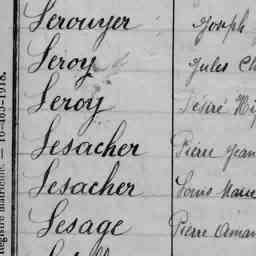 Lerouyer Joseph
Leroy Jules
Leroy Désiré
Lesacher Pierre Jean
Lesacher Louis Marie
Lesage Pierre
Registre matricule. — 16-465-1918.